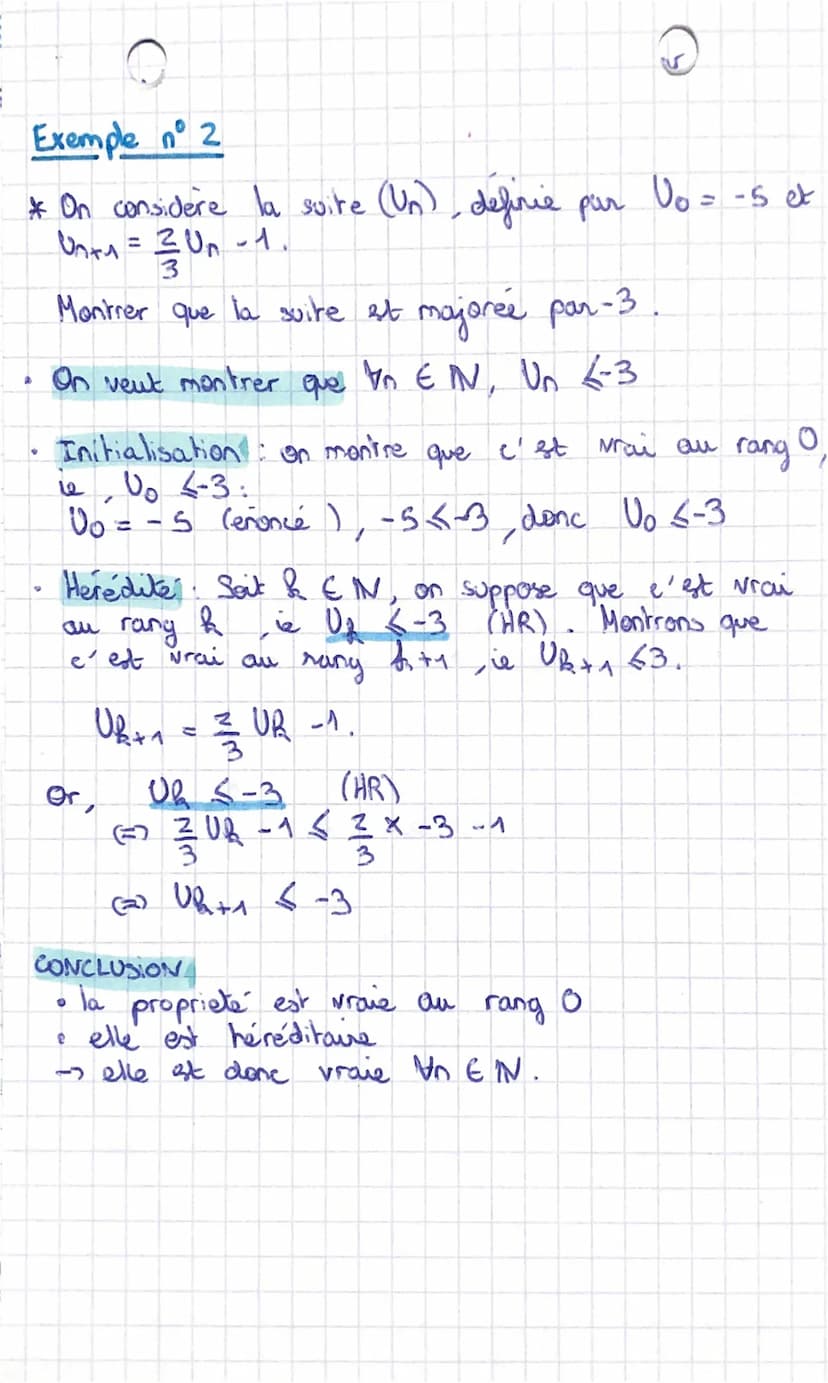 Exemple n° 2
* On considère la suite (Un), définie par U₀ = -5 et
Un+1 = 2/3 Un - 1.
Montrer que la suite est majorée par -3.
• On veut montrer que ∀n ∈ ℕ, Un ≤ -3
• Initialisation : on montre que c'est vrai au rang 0,
ie, U₀ ≤ -3 :
U₀ = -5 (énoncé), -5 ≤ -3, donc U₀ ≤ -3
• Hérédité : Soit k ∈ ℕ, on suppose que c'est vrai
au rang k, ie Uk ≤ -3 (HR). Montrons que
c'est vrai au rang k+1, ie Uk+1 ≤ 3.
Uk+1 = 2/3 Uk - 1.
Or, Uk ≤ -3 (HR)
(=) 2/3 Uk - 1 ≤ 2/3 × -3 - 1
(=) Uk+1 ≤ -3
CONCLUSION
• la propriété est vraie au rang 0
• elle est héréditaire
→ elle est donc vraie ∀n ∈ ℕ.